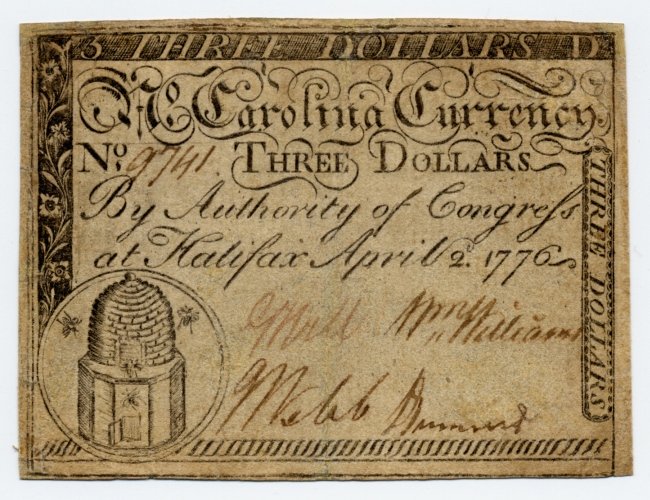 3 THREE DOLLARS D.
No Carolina Currency
No. 9741. THREE DOLLARS
By Authority of Congress
at Halifax April 2. 1776
Wm Williams
J Webb
THREE DOLLARS